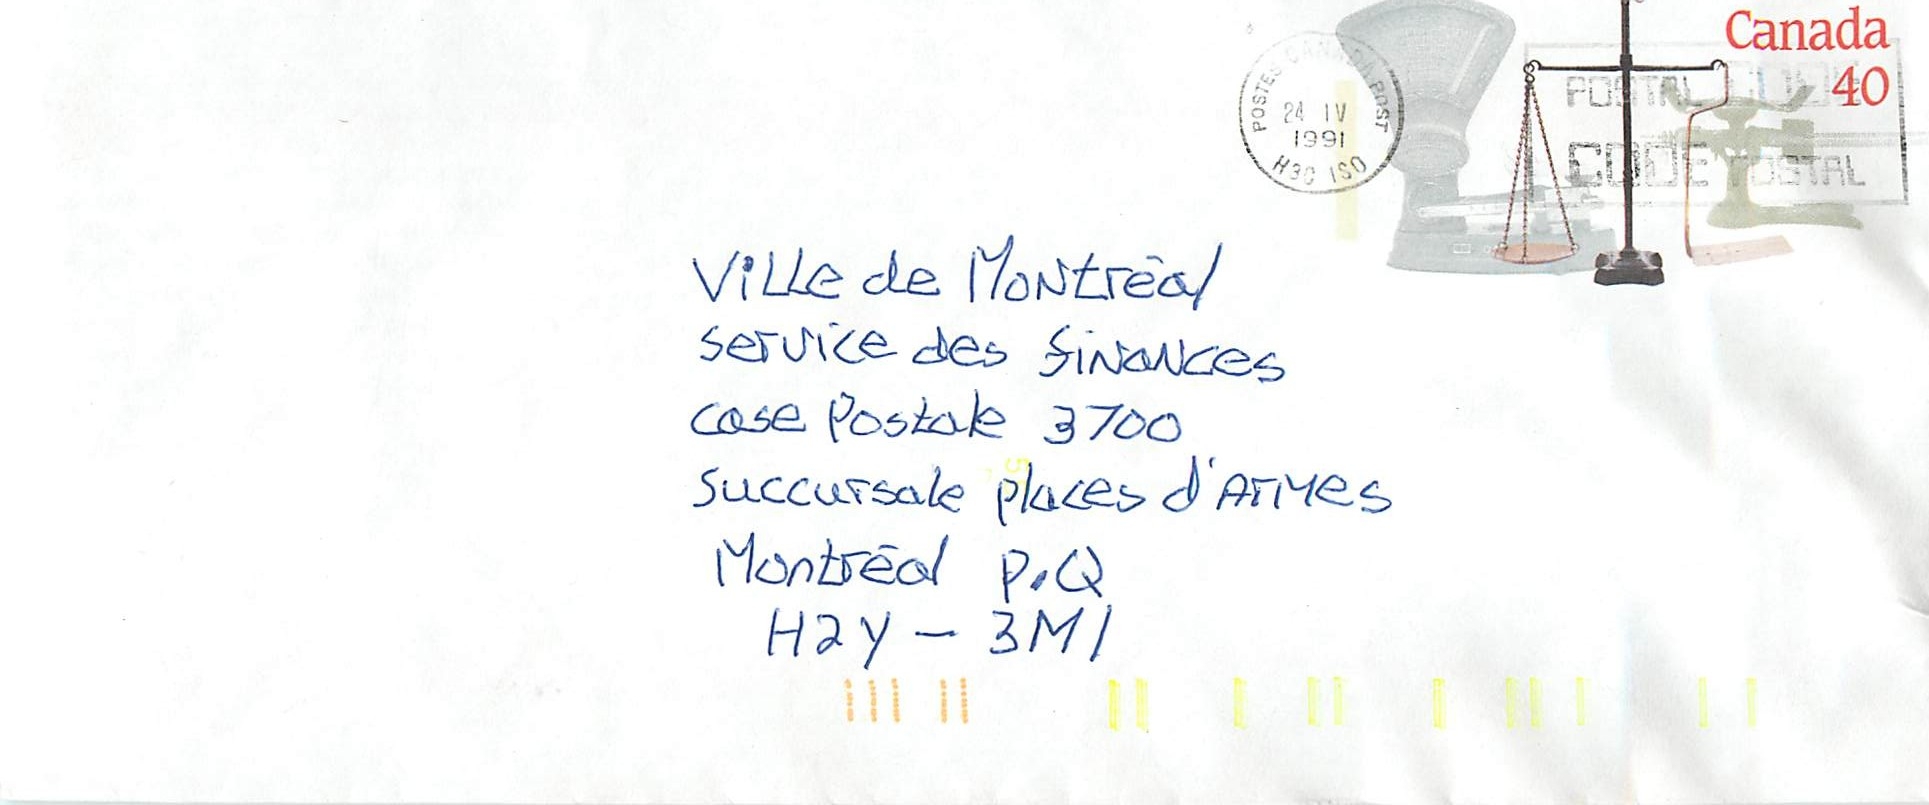 Canada
40
POSTES CANADA POST
24 IV
1991
H3C 1S0
POSTAL CODE
CODE POSTAL
Ville de Montréal
service des finances
case Postale 3700
succursale places d'Armes
Montréal P.Q
H2Y - 3M1